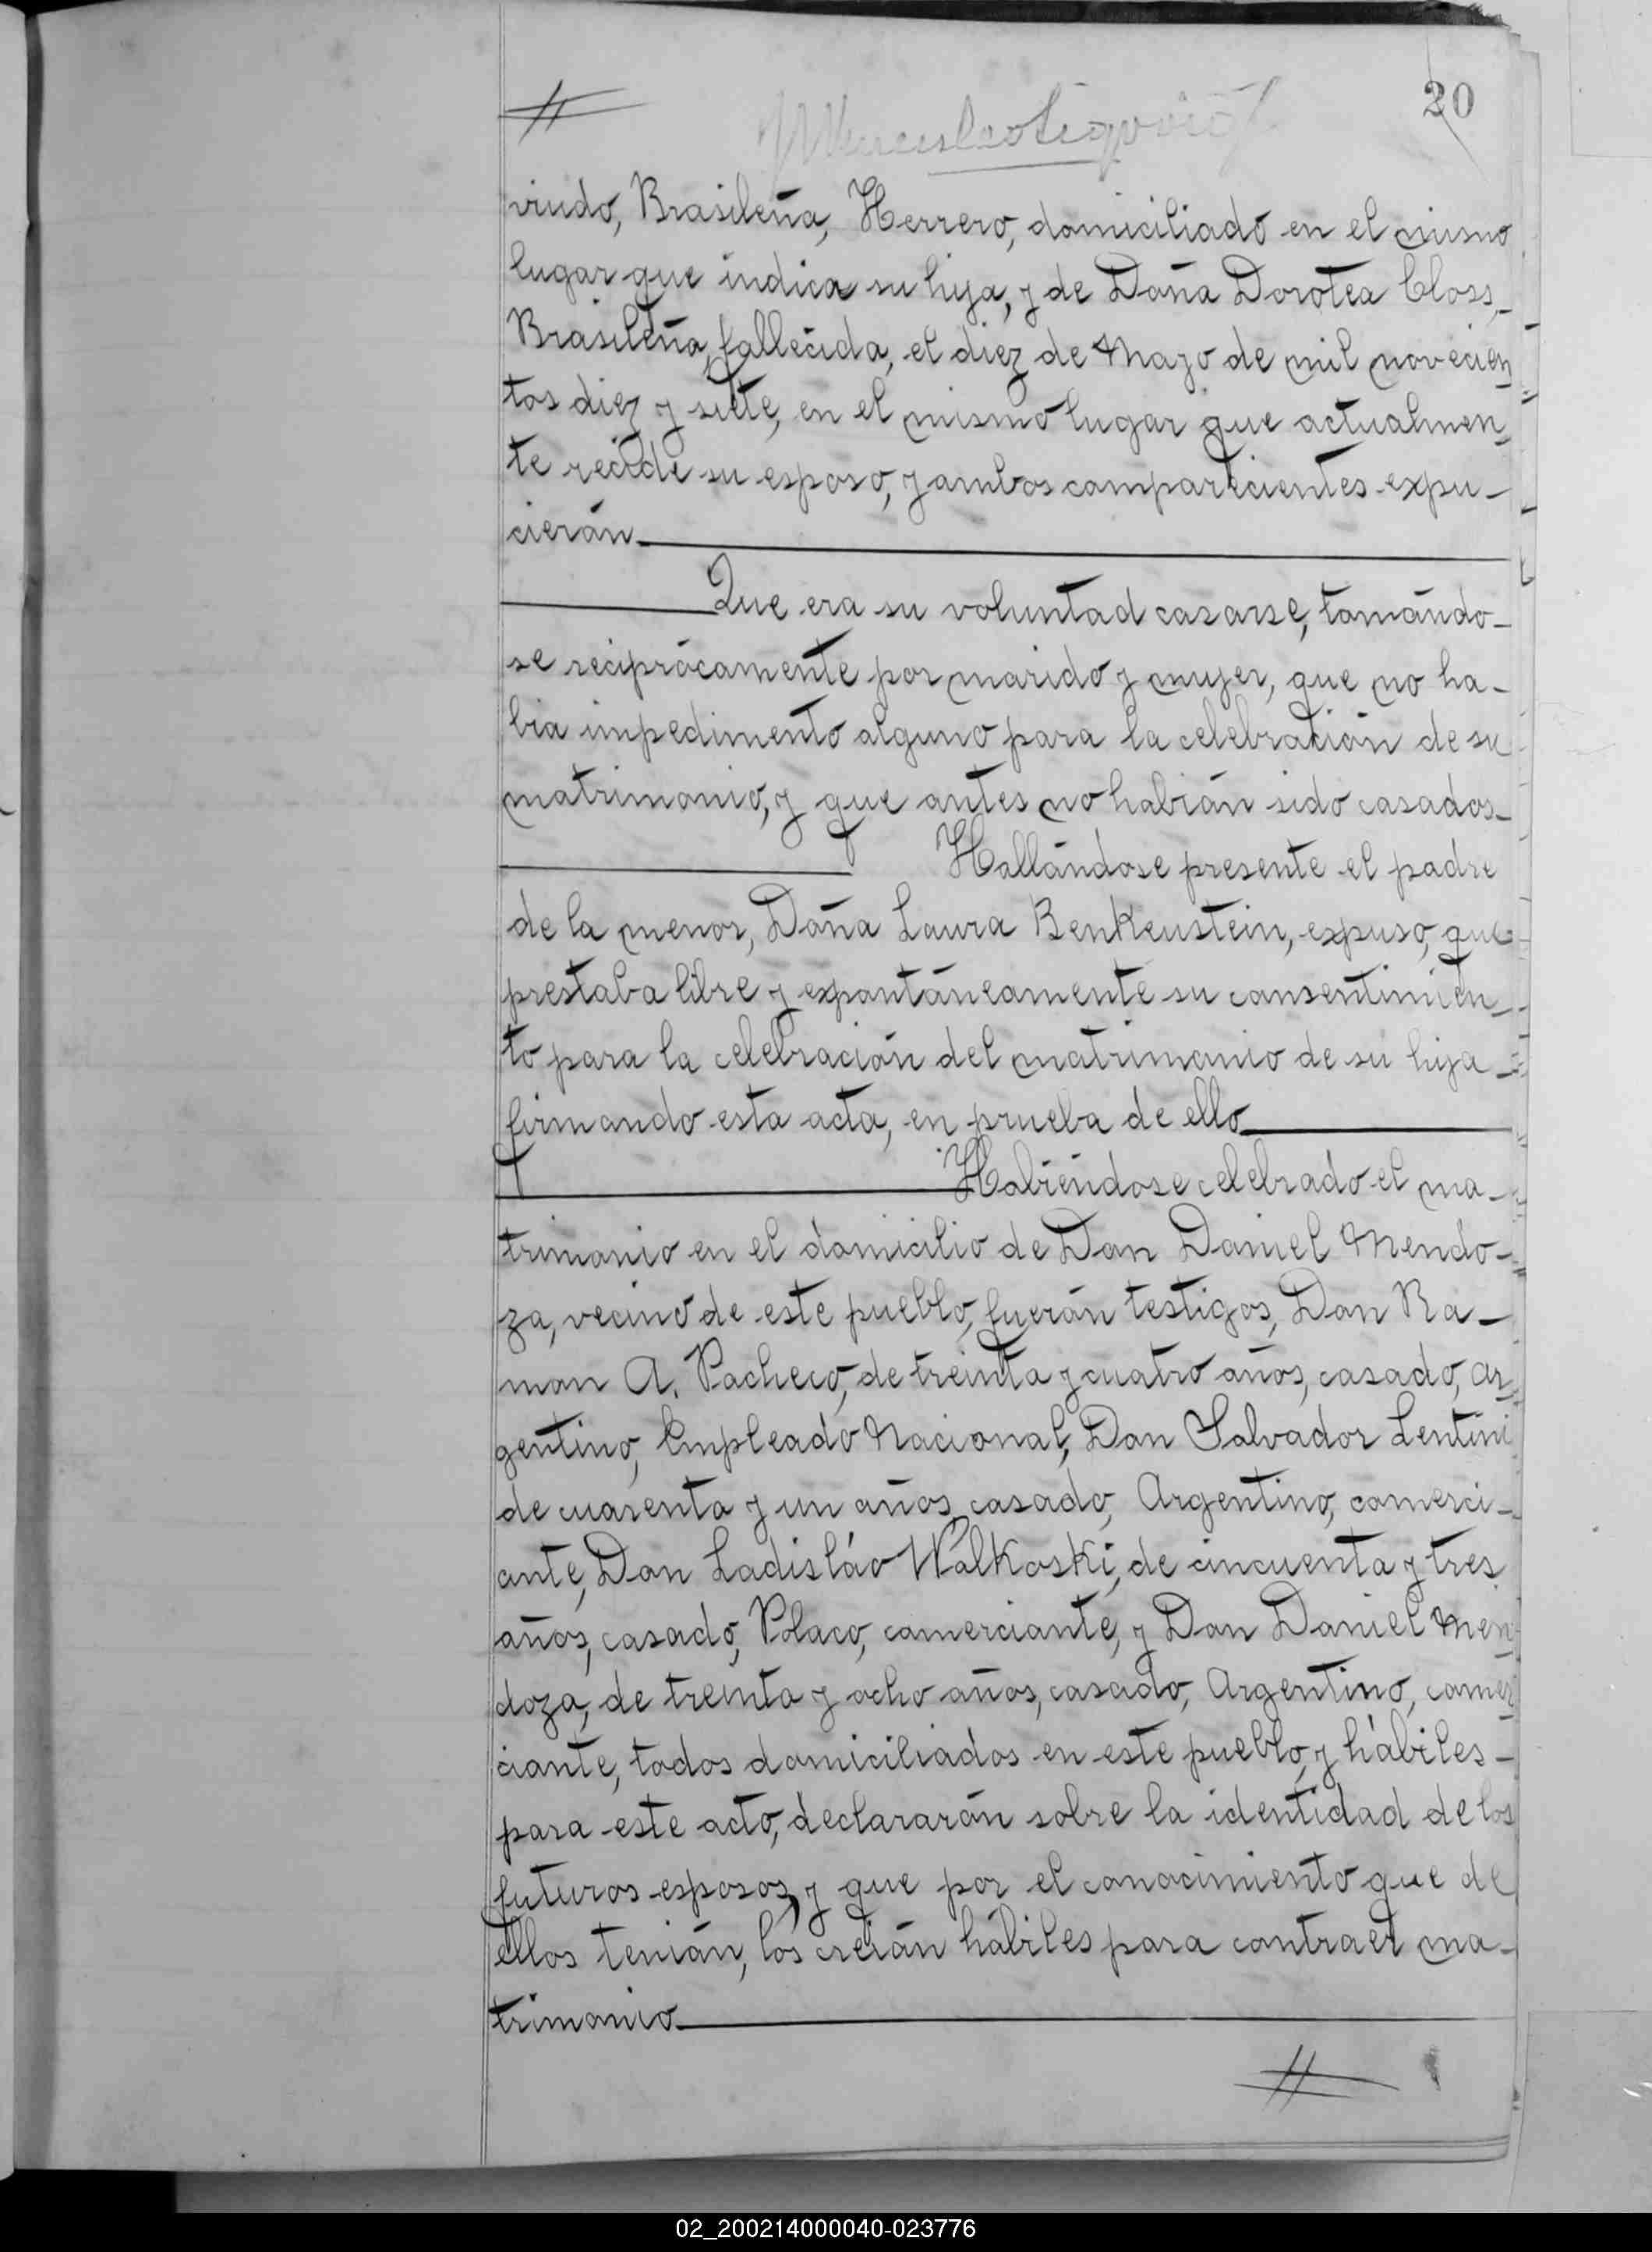 20
viudo, Brasileña, Herrero, domiciliado en el mismo
lugar que indica su hija, y de Doña Dorotea Closs,-
Brasileña, fallecida, el diez de Mayo de mil novecien
tos diez y siete, en el mismo lugar que actualmen
te recide su esposo, y ambos comparecientes expu-
cierán
Que era su voluntad casarse, tomándo-
se reciprócamente por marido y mujer, que no ha-
bia impedimento alguno para la celebración de su
matrimonio, y que antes no habián sido casados-
Hallándose presente el padre
de la menor, Doña Laura Benkenstein, expuso, que
prestaba libre y expontáneamente su consentimien
to para la celebración del matrimonio de su hija-
firmando esta acta, en prueba de ello
Habiéndose celebrado el ma-
trimonio en el domicilio de Don Daniel Mendo-
za, vecino de este pueblo, fuerán testigos, Don Ra-
mon A. Pacheco, de treinta y cuatro años, casado, Ar
gentino, Empleado Nacional, Don Salvador Lentini
de cuarenta y un años, casado, Argentino, comerci-
ante, Don Ladisláo Walkoski, de cincuenta y tres
años, casado, Polaco, comerciante, y Don Daniel Men
doza, de treinta y ocho años, casado, Argentino, comer
ciante, todos domiciliados en este pueblo, y hábiles-
para este acto, declararán sobre la identidad de los
futuros esposos, y que por el conocimiento que de
ellos tenián, los creián hábiles para contraer ma-
trimonio
02_200214000040-023776